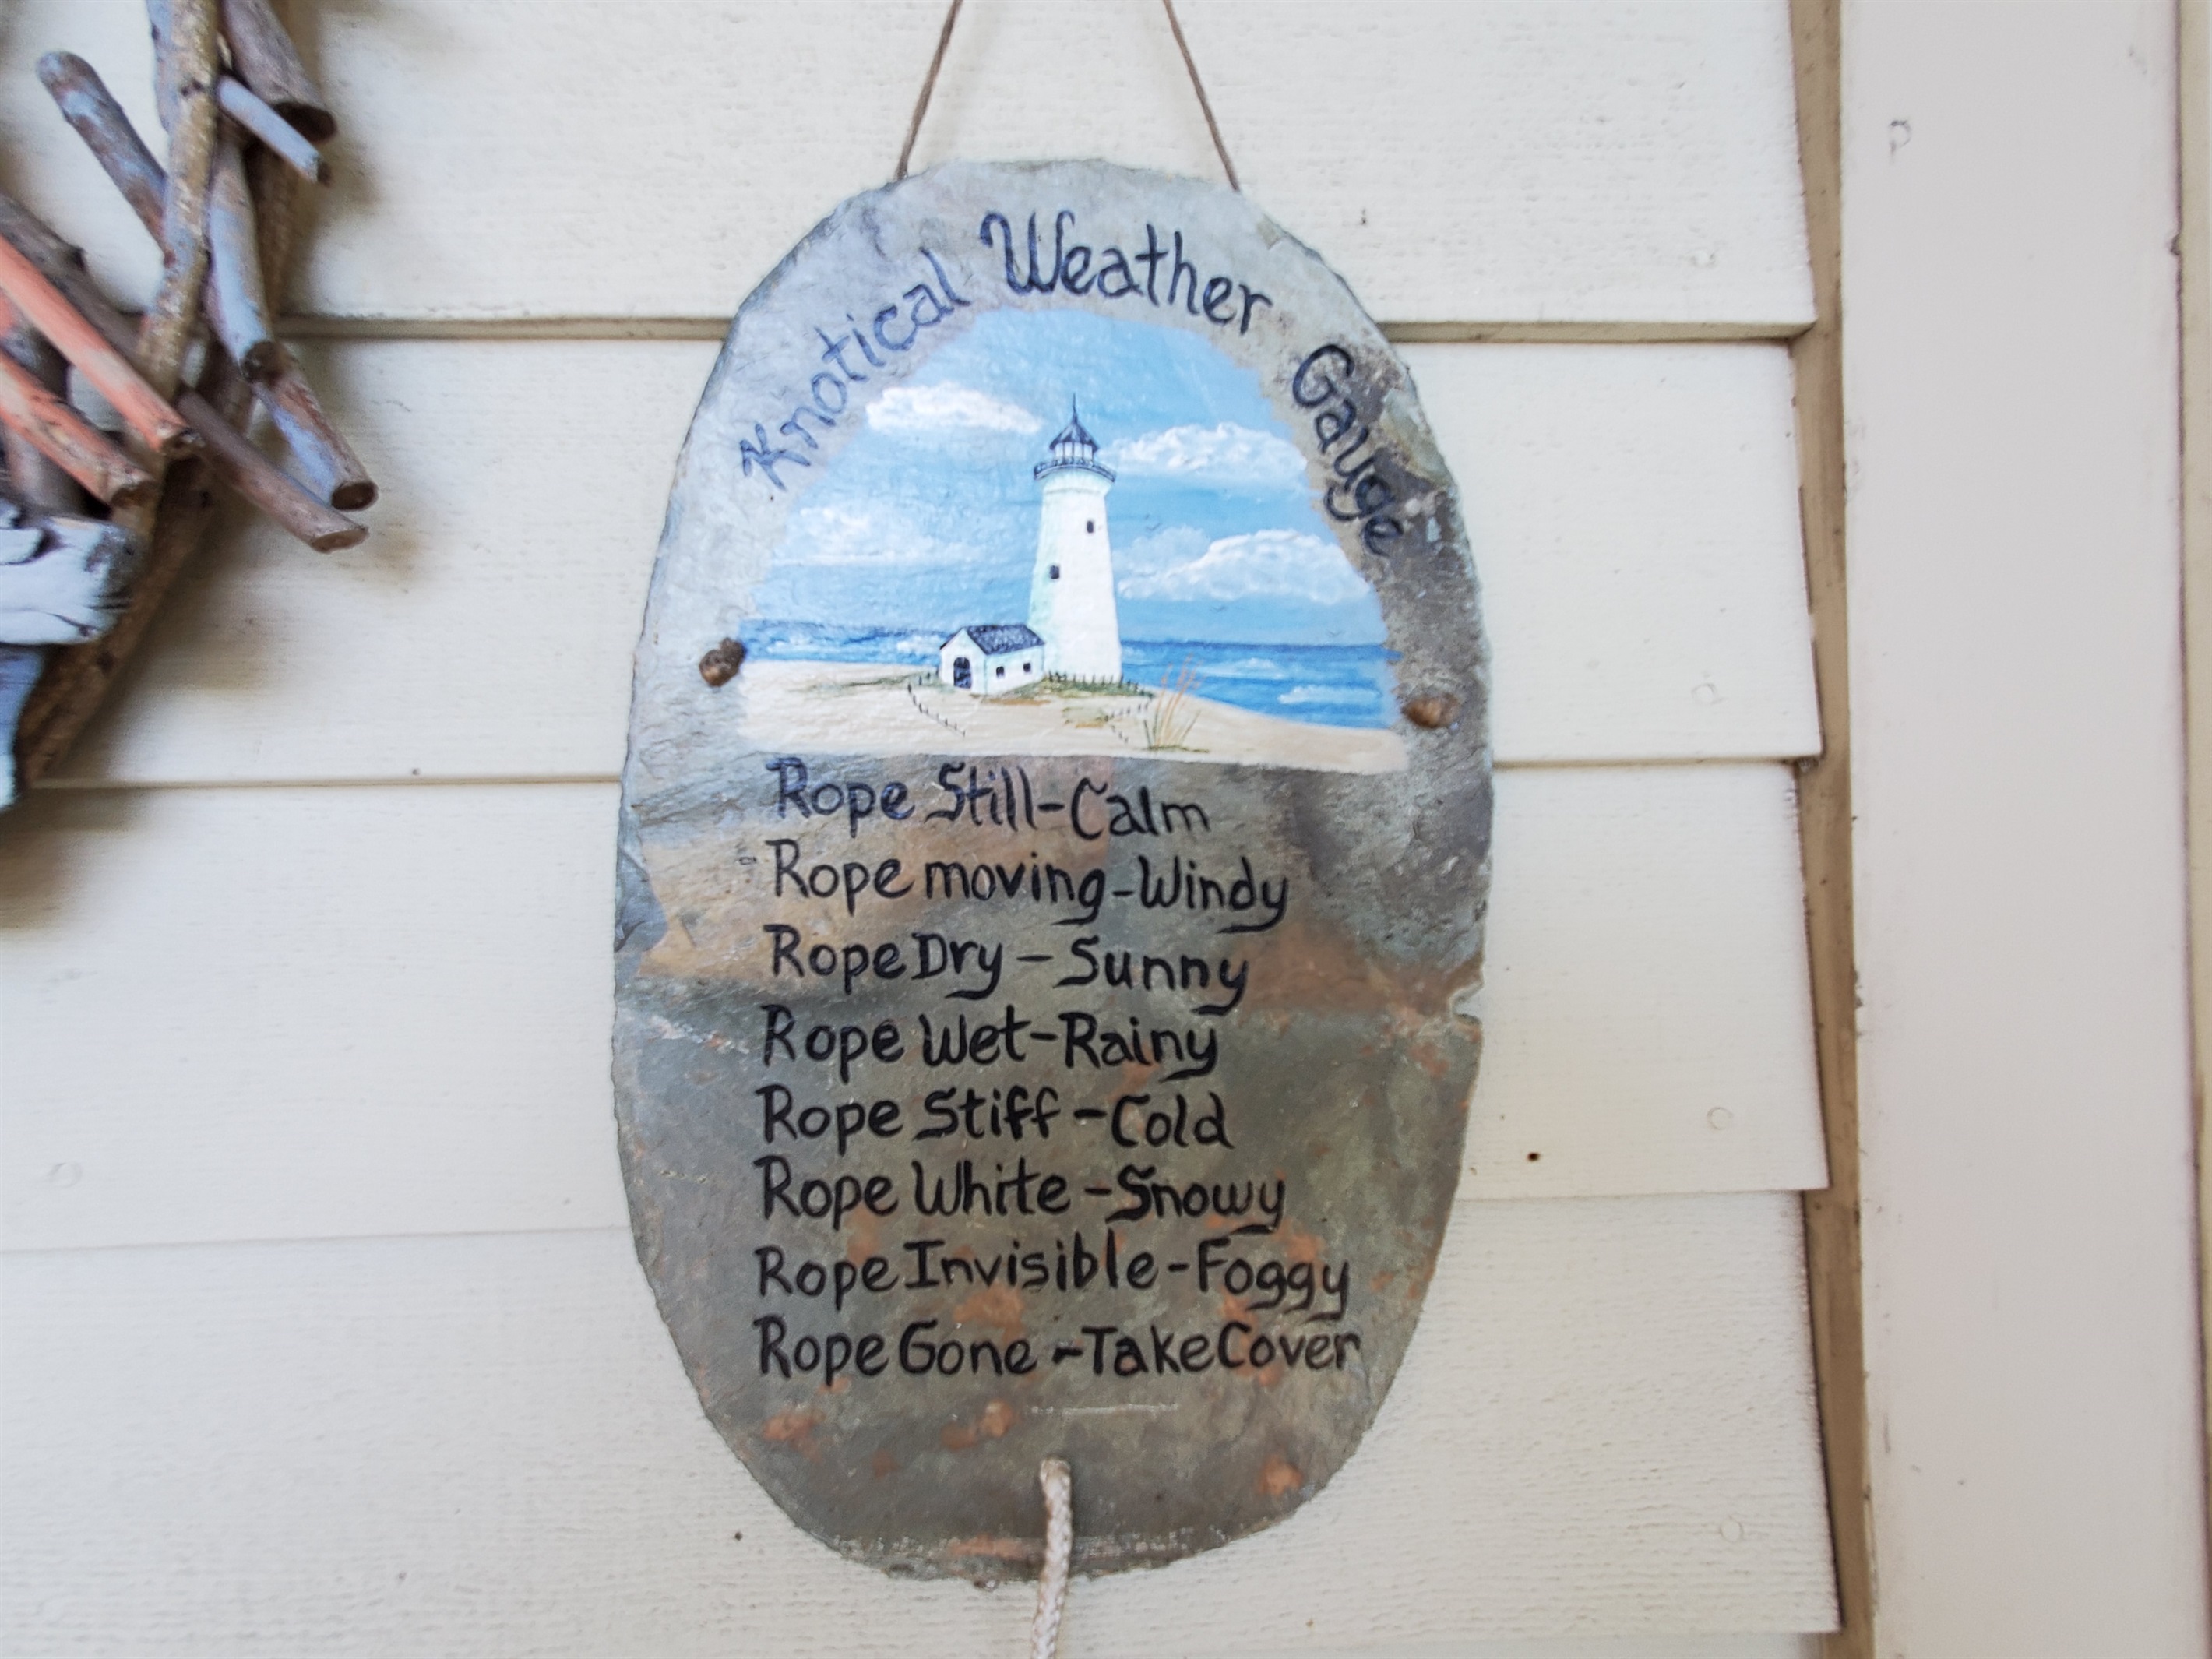 Knotical Weather Gauge
Rope Still-Calm
Rope moving-Windy
Rope Dry-Sunny
Rope Wet-Rainy
Rope Stiff-Cold
Rope White-Snowy
Rope Invisible-Foggy
Rope Gone-Take Cover